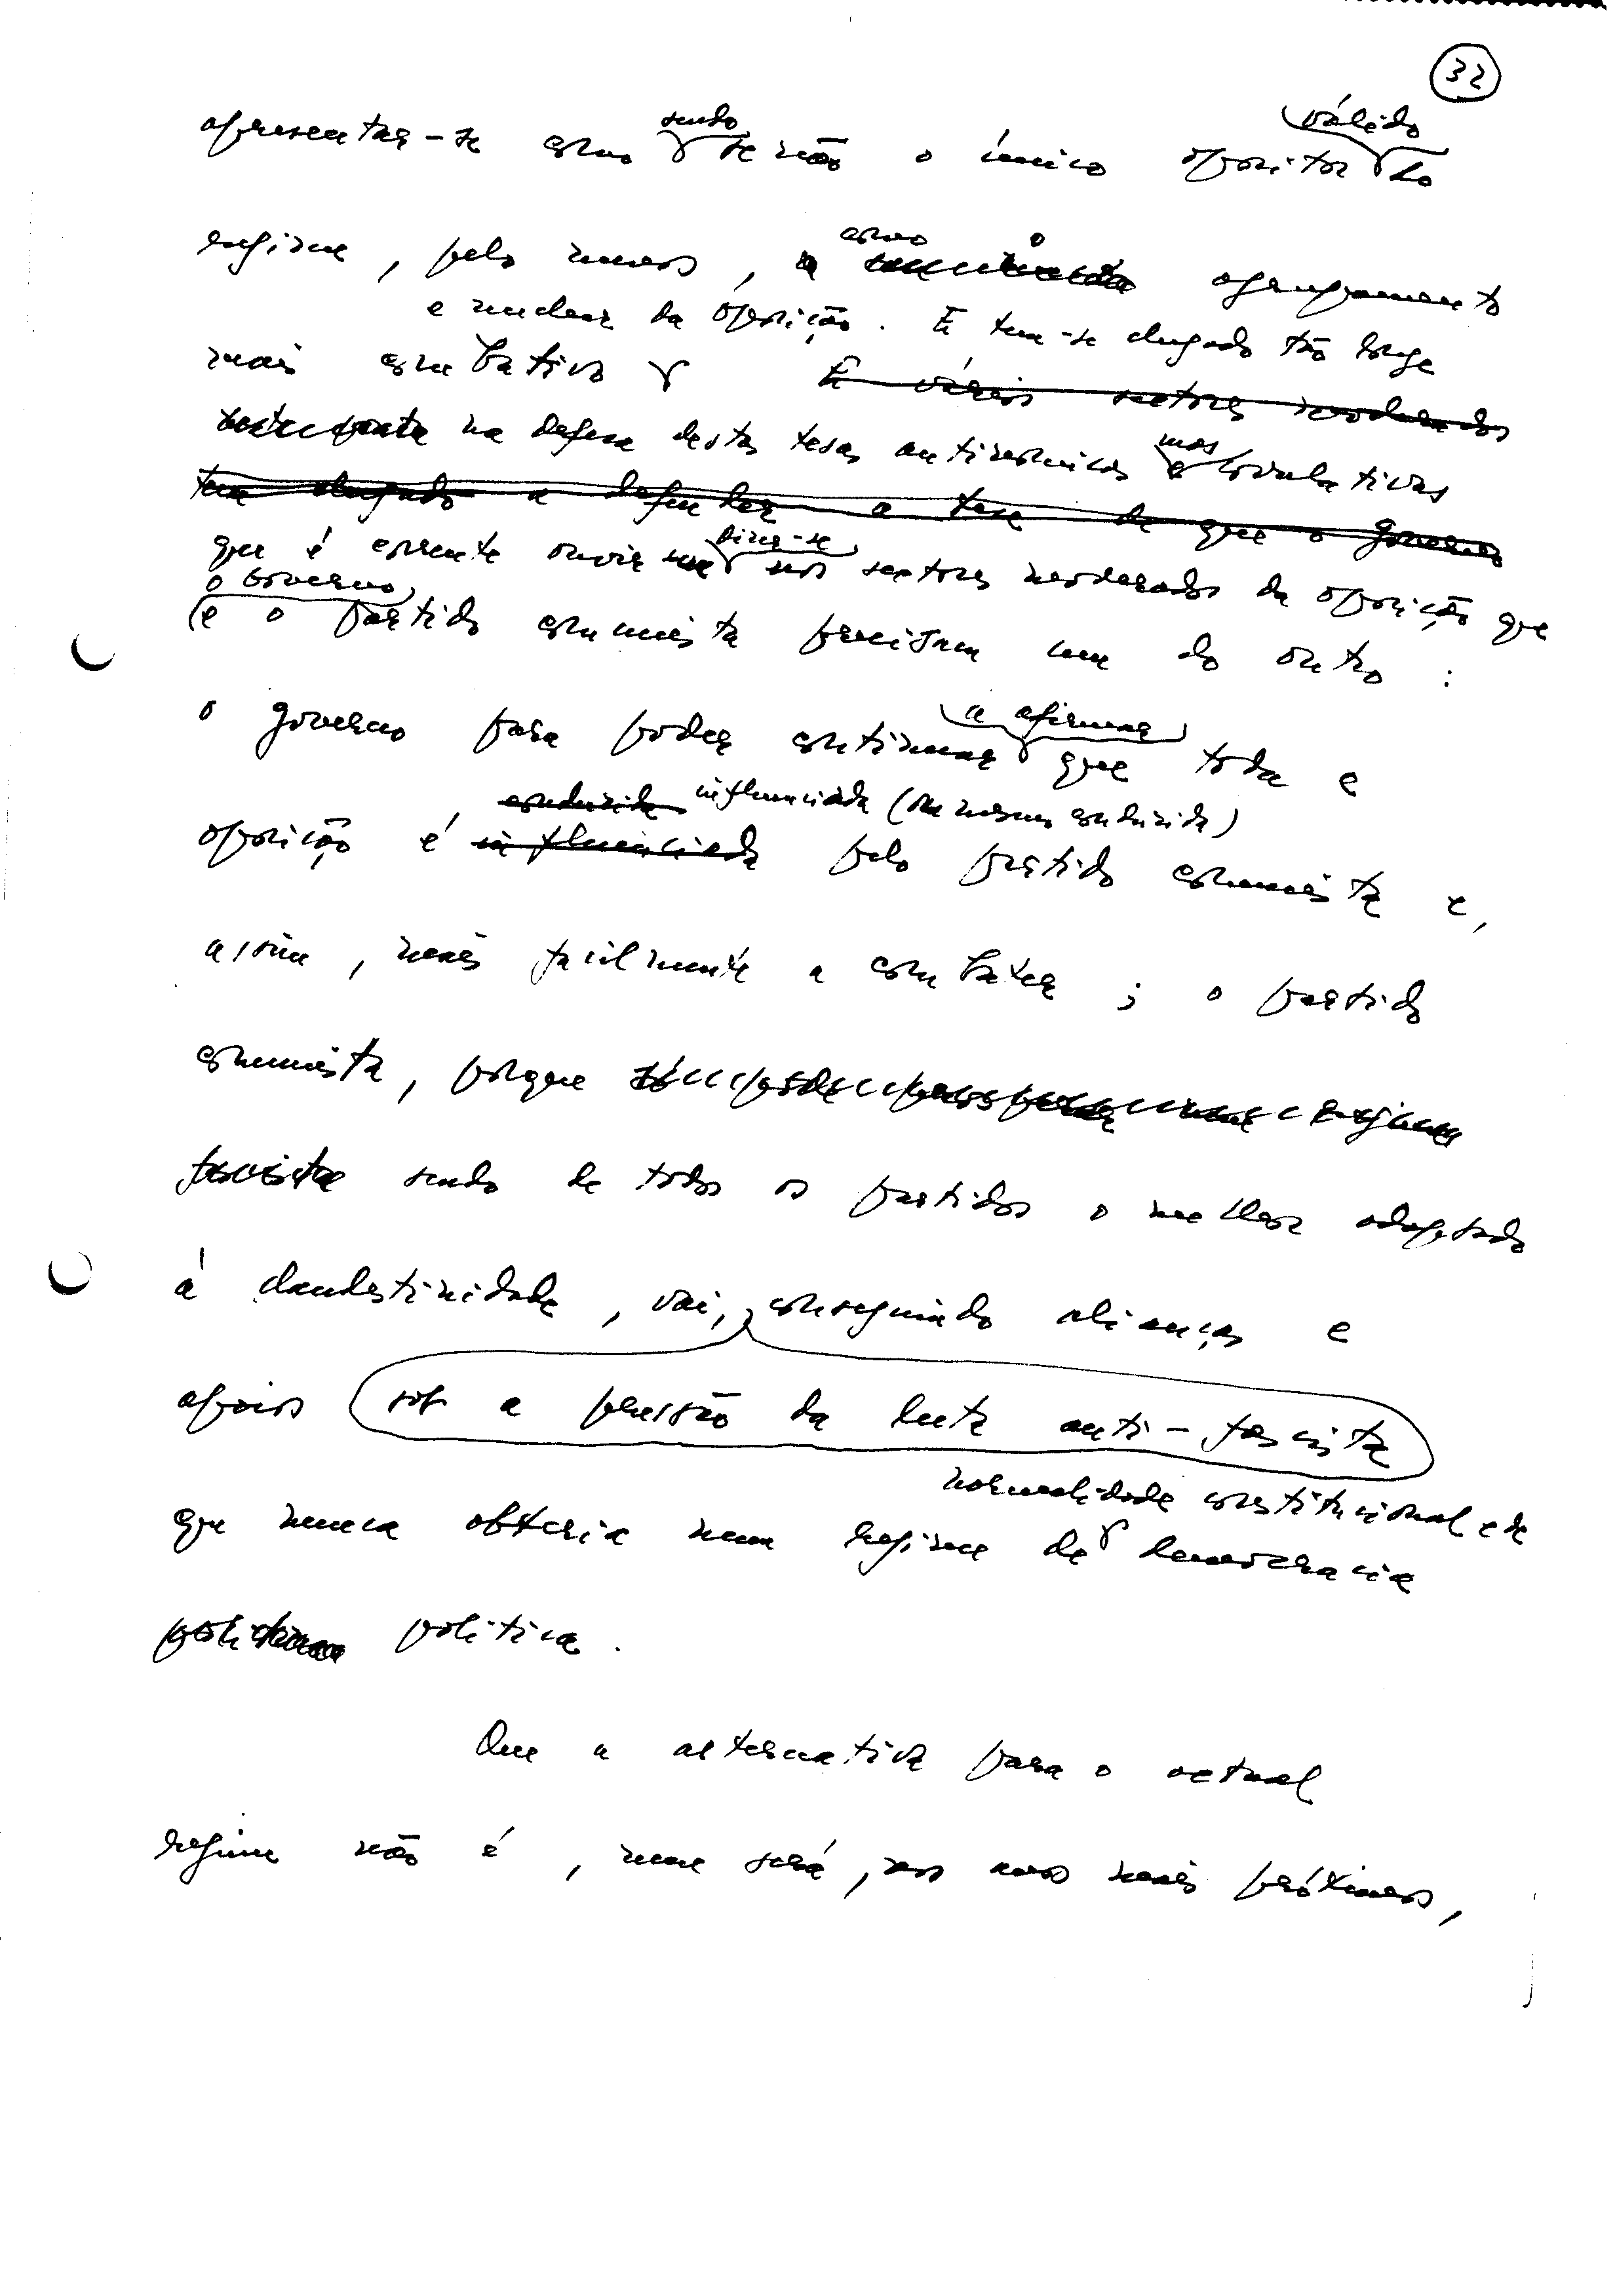 32
sendo válido
apresentar-se como se não o único opositor do
como o
regime, pelo menos, a agrupamento
e nuclear da oposição. E tem-se chegado tão longe
mais combativo E vários sectores moderados
na defesa destas teses anticomunistas mas
tem chegado a defender a tese de que o governo
dizer-se
que é corrente ouvir nos sectores moderados da oposição que
o Governo
e o partido comunista precisam um do outro :
a afirmar
o governo para poder continuar que toda a
conduzida influenciada (ou mesmo conduzida)
oposição é influenciada pelo partido comunista e,
assim, mais facilmente a combater ; o partido
comunista, porque só pode
fascista sendo de todos os partidos o melhor adaptado
à clandestinidade, vai, conseguindo alianças e
apoios sob a pressão da luta anti-fascista
normalidade constitucional e de
que nunca obteria num regime de democracia
política.
Que a alternativa para o actual
regime não é, nem será, nos anos mais próximos,